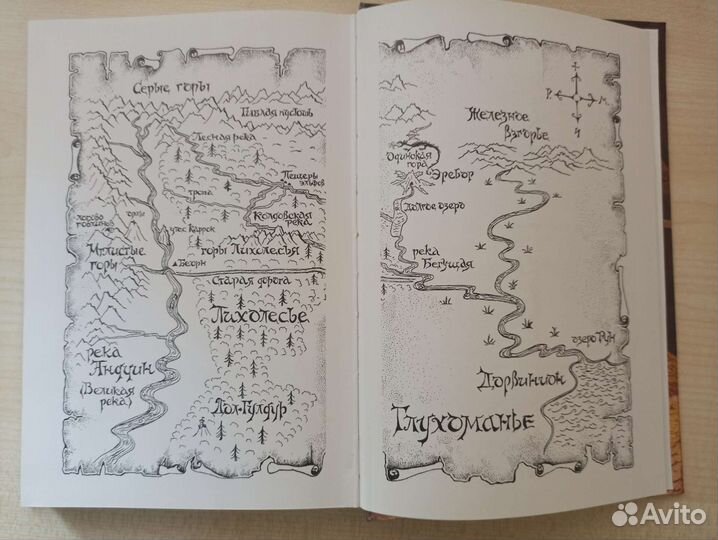 Серые горы
Гиблая пустошь
Лесная река
Пещеры
эльфов
тропа
Колдовская
река
логово
гоблинов
орлы
утес Каррок
Мглистые
горы
горы Лихолесья
Беорн
Старая дорога
Лихолесье
река
Андуин
(Великая
река)
Дол-Гулдур
Железное
взгорье
Одинокая
гора
Эребор
Долгое озеро
река
Бегущая
озеро Рун
Дорвинион
Глухоманье
Avito